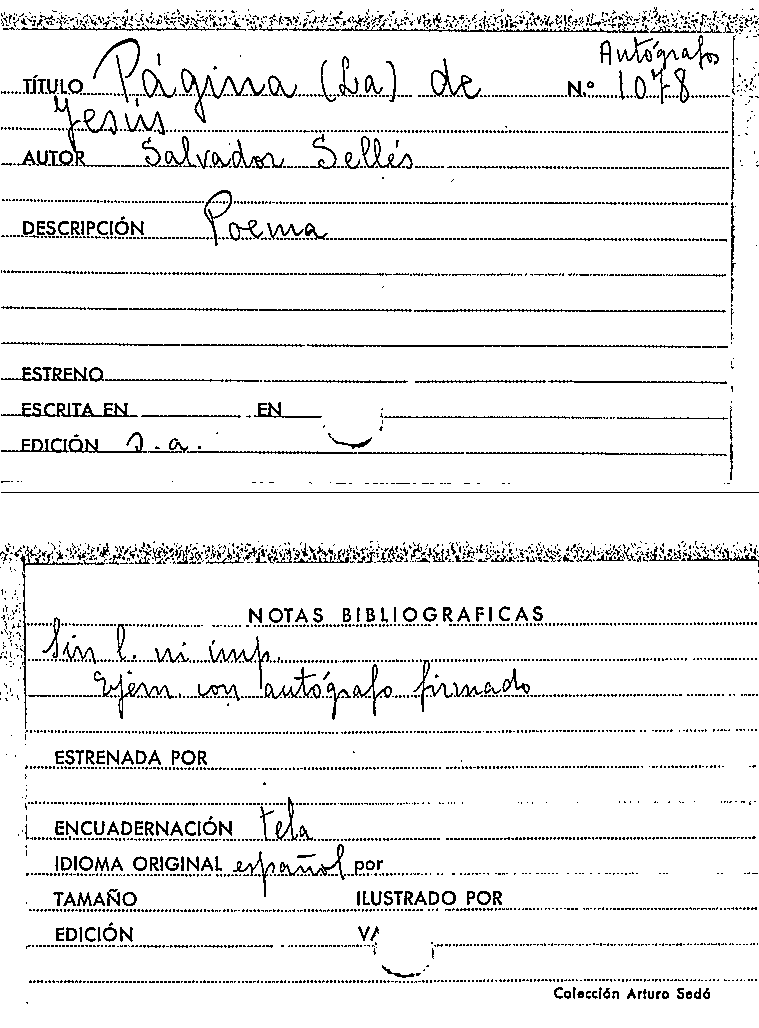 Autógrafos
TÍTULO Página (La) de N.º 1078
Jesús
AUTOR Salvador Sellés
DESCRIPCIÓN Poema
ESTRENO
ESCRITA EN EN
EDICIÓN s.a.
NOTAS BIBLIOGRAFICAS
Sin l. ni imp.
Ejem. con autógrafo firmado
ESTRENADA POR
ENCUADERNACIÓN tela
IDIOMA ORIGINAL español por
TAMAÑO ILUSTRADO POR
EDICIÓN
Colección Arturo Sedó